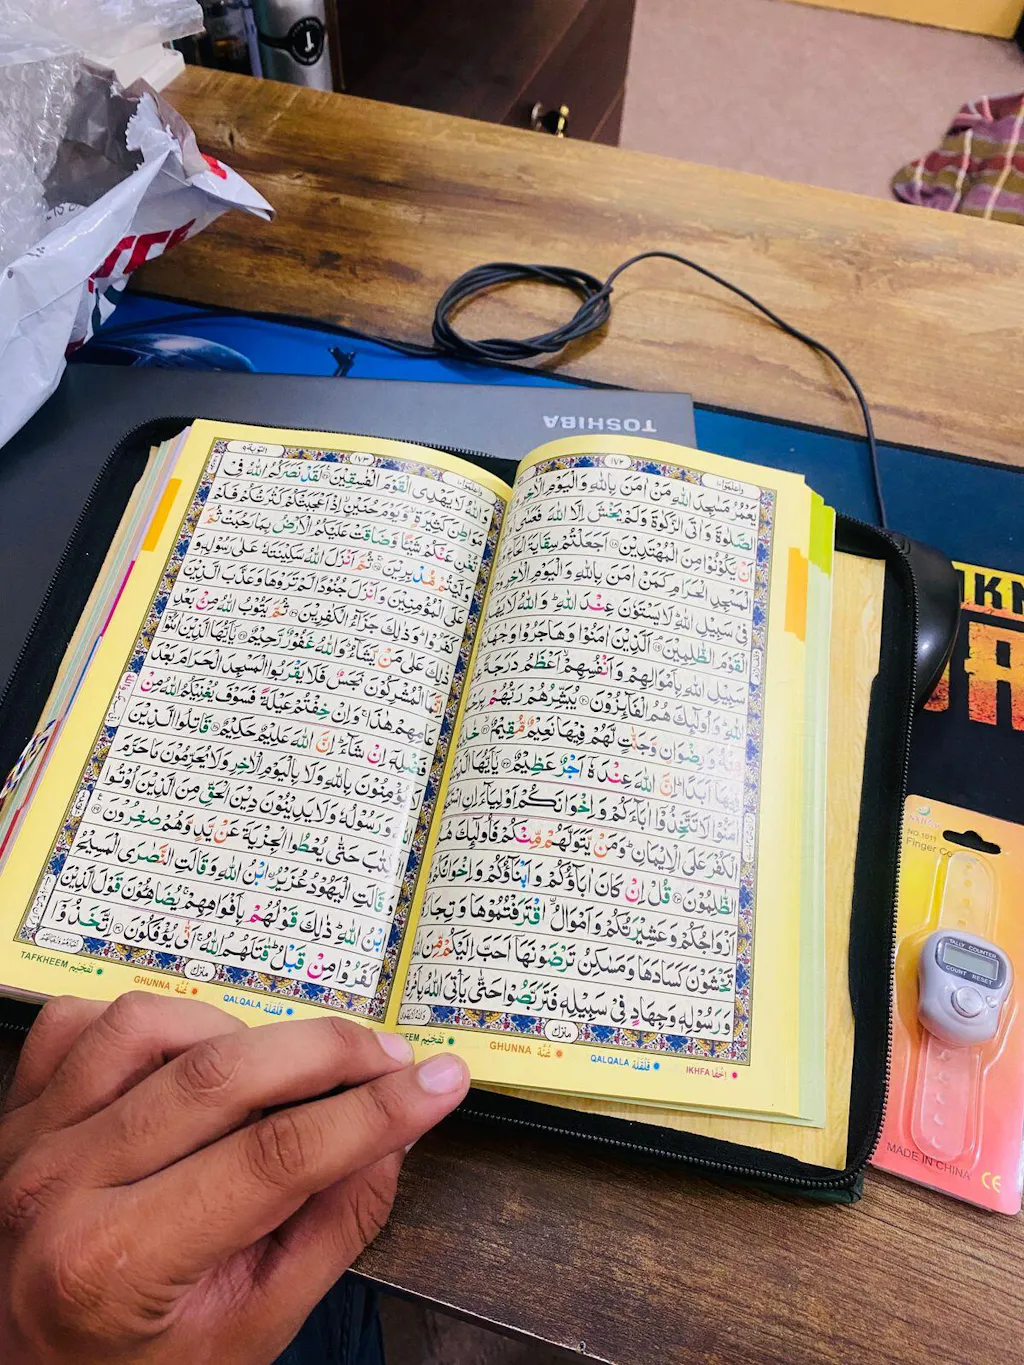 TOSHIBA
١٧٢
واعلموا ١٠
يَعْمُرُ مَسٰجِدَ اللّٰهِ مَنْ اٰمَنَ بِاللّٰهِ وَالْيَوْمِ الْاٰخِرِ
الصَّلٰوةَ وَاٰتَى الزَّكٰوةَ وَلَمْ يَخْشَ اِلَّا اللّٰهَ فَعَسٰٓى
اَنْ يَّكُوْنُوْا مِنَ الْمُهْتَدِيْنَ ۱۸ اَجَعَلْتُمْ سِقَايَةَ
الْمَسْجِدِ الْحَرَامِ كَمَنْ اٰمَنَ بِاللّٰهِ وَالْيَوْمِ الْاٰخِرِ
فِيْ سَبِيْلِ اللّٰهِ لَا يَسْتَوٗنَ عِنْدَ اللّٰهِ وَاللّٰهُ لَا
الْقَوْمَ الظّٰلِمِيْنَ ۱۹ اَلَّذِيْنَ اٰمَنُوْا وَهَاجَرُوْا
سَبِيْلِ اللّٰهِ بِاَمْوَالِهِمْ وَاَنْفُسِهِمْ اَعْظَمُ دَرَجَةً
اللّٰهِ وَاُولٰٓئِكَ هُمُ الْفَآئِزُوْنَ ۲۰ يُبَشِّرُهُمْ رَبُّهُمْ
مِّنْهُ وَرِضْوَانٍ وَّجَنّٰتٍ لَّهُمْ فِيْهَا نَعِيْمٌ مُّقِيْمٌ ۲۱
فِيْهَآ اَبَدًا اِنَّ اللّٰهَ عِنْدَهٗٓ اَجْرٌ عَظِيْمٌ ۲۲ يٰٓاَيُّهَا
اٰمَنُوْا لَا تَتَّخِذُوْٓا اٰبَآءَكُمْ وَاِخْوَانَكُمْ اَوْلِيَآءَ اِنِ
الْكُفْرَ عَلَى الْاِيْمَانِ وَمَنْ يَّتَوَلَّهُمْ مِّنْكُمْ فَاُولٰٓئِكَ
الظّٰلِمُوْنَ ۲۳ قُلْ اِنْ كَانَ اٰبَآؤُكُمْ وَاَبْنَآؤُكُمْ وَاِخْوَانُكُمْ
وَاَزْوَاجُكُمْ وَعَشِيْرَتُكُمْ وَاَمْوَالُ اقْتَرَفْتُمُوْهَا وَتِجَارَةٌ
تَخْشَوْنَ كَسَادَهَا وَمَسٰكِنُ تَرْضَوْنَهَآ اَحَبَّ اِلَيْكُمْ مِّنَ اللّٰهِ
وَرَسُوْلِهٖ وَجِهَادٍ فِيْ سَبِيْلِهٖ فَتَرَبَّصُوْا حَتّٰى يَاْتِيَ اللّٰهُ
منزل
تَفْخِيْم
GHUNNA غُنَّة
QALQALA قَلْقَلَة
IKHFA اِخْفَا
التوبة ٩
١٧٣
واعلموا ١٠
وَاللّٰهُ لَا يَهْدِى الْقَوْمَ الْفٰسِقِيْنَ ۲۴ لَقَدْ نَصَرَكُمُ اللّٰهُ فِيْ
مَوَاطِنَ كَثِيْرَةٍ وَّيَوْمَ حُنَيْنٍ اِذْ اَعْجَبَتْكُمْ كَثْرَتُكُمْ فَلَمْ
تُغْنِ عَنْكُمْ شَيْئًا وَّضَاقَتْ عَلَيْكُمُ الْاَرْضُ بِمَا رَحُبَتْ ثُمَّ
وَلَّيْتُمْ مُّدْبِرِيْنَ ۲۵ ثُمَّ اَنْزَلَ اللّٰهُ سَكِيْنَتَهٗ عَلٰى رَسُوْلِهٖ وَ
عَلَى الْمُؤْمِنِيْنَ وَاَنْزَلَ جُنُوْدًا لَّمْ تَرَوْهَا وَعَذَّبَ الَّذِيْنَ
كَفَرُوْا وَذٰلِكَ جَزَآءُ الْكٰفِرِيْنَ ۲۶ ثُمَّ يَتُوْبُ اللّٰهُ مِنْ بَعْدِ
ذٰلِكَ عَلٰى مَنْ يَّشَآءُ وَاللّٰهُ غَفُوْرٌ رَّحِيْمٌ ۲۷ يٰٓاَيُّهَا الَّذِيْنَ اٰمَنُوْٓا
اِنَّمَا الْمُشْرِكُوْنَ نَجَسٌ فَلَا يَقْرَبُوا الْمَسْجِدَ الْحَرَامَ بَعْدَ
عَامِهِمْ هٰذَا وَاِنْ خِفْتُمْ عَيْلَةً فَسَوْفَ يُغْنِيْكُمُ اللّٰهُ مِنْ
فَضْلِهٖٓ اِنْ شَآءَ اِنَّ اللّٰهَ عَلِيْمٌ حَكِيْمٌ ۲۸ قَاتِلُوا الَّذِيْنَ
لَا يُؤْمِنُوْنَ بِاللّٰهِ وَلَا بِالْيَوْمِ الْاٰخِرِ وَلَا يُحَرِّمُوْنَ مَا حَرَّمَ
اللّٰهُ وَرَسُوْلُهٗ وَلَا يَدِيْنُوْنَ دِيْنَ الْحَقِّ مِنَ الَّذِيْنَ اُوْتُوا
الْكِتٰبَ حَتّٰى يُعْطُوا الْجِزْيَةَ عَنْ يَّدٍ وَّهُمْ صٰغِرُوْنَ ۲۹
وَقَالَتِ الْيَهُوْدُ عُزَيْرُ ابْنُ اللّٰهِ وَقَالَتِ النَّصٰرَى الْمَسِيْحُ
ابْنُ اللّٰهِ ذٰلِكَ قَوْلُهُمْ بِاَفْوَاهِهِمْ يُضَاهِـُٔوْنَ قَوْلَ الَّذِيْنَ
كَفَرُوْا مِنْ قَبْلُ قٰتَلَهُمُ اللّٰهُ اَنّٰى يُؤْفَكُوْنَ ۳۰ اِتَّخَذُوْٓا
منزل
TAFKHEEM تَفْخِيْم
GHUNNA غُنَّة
QALQALA قَلْقَلَة
NO. 1011
Finger Co
TALLY COUNTER
COUNT RESET
MADE IN CHINA
CE